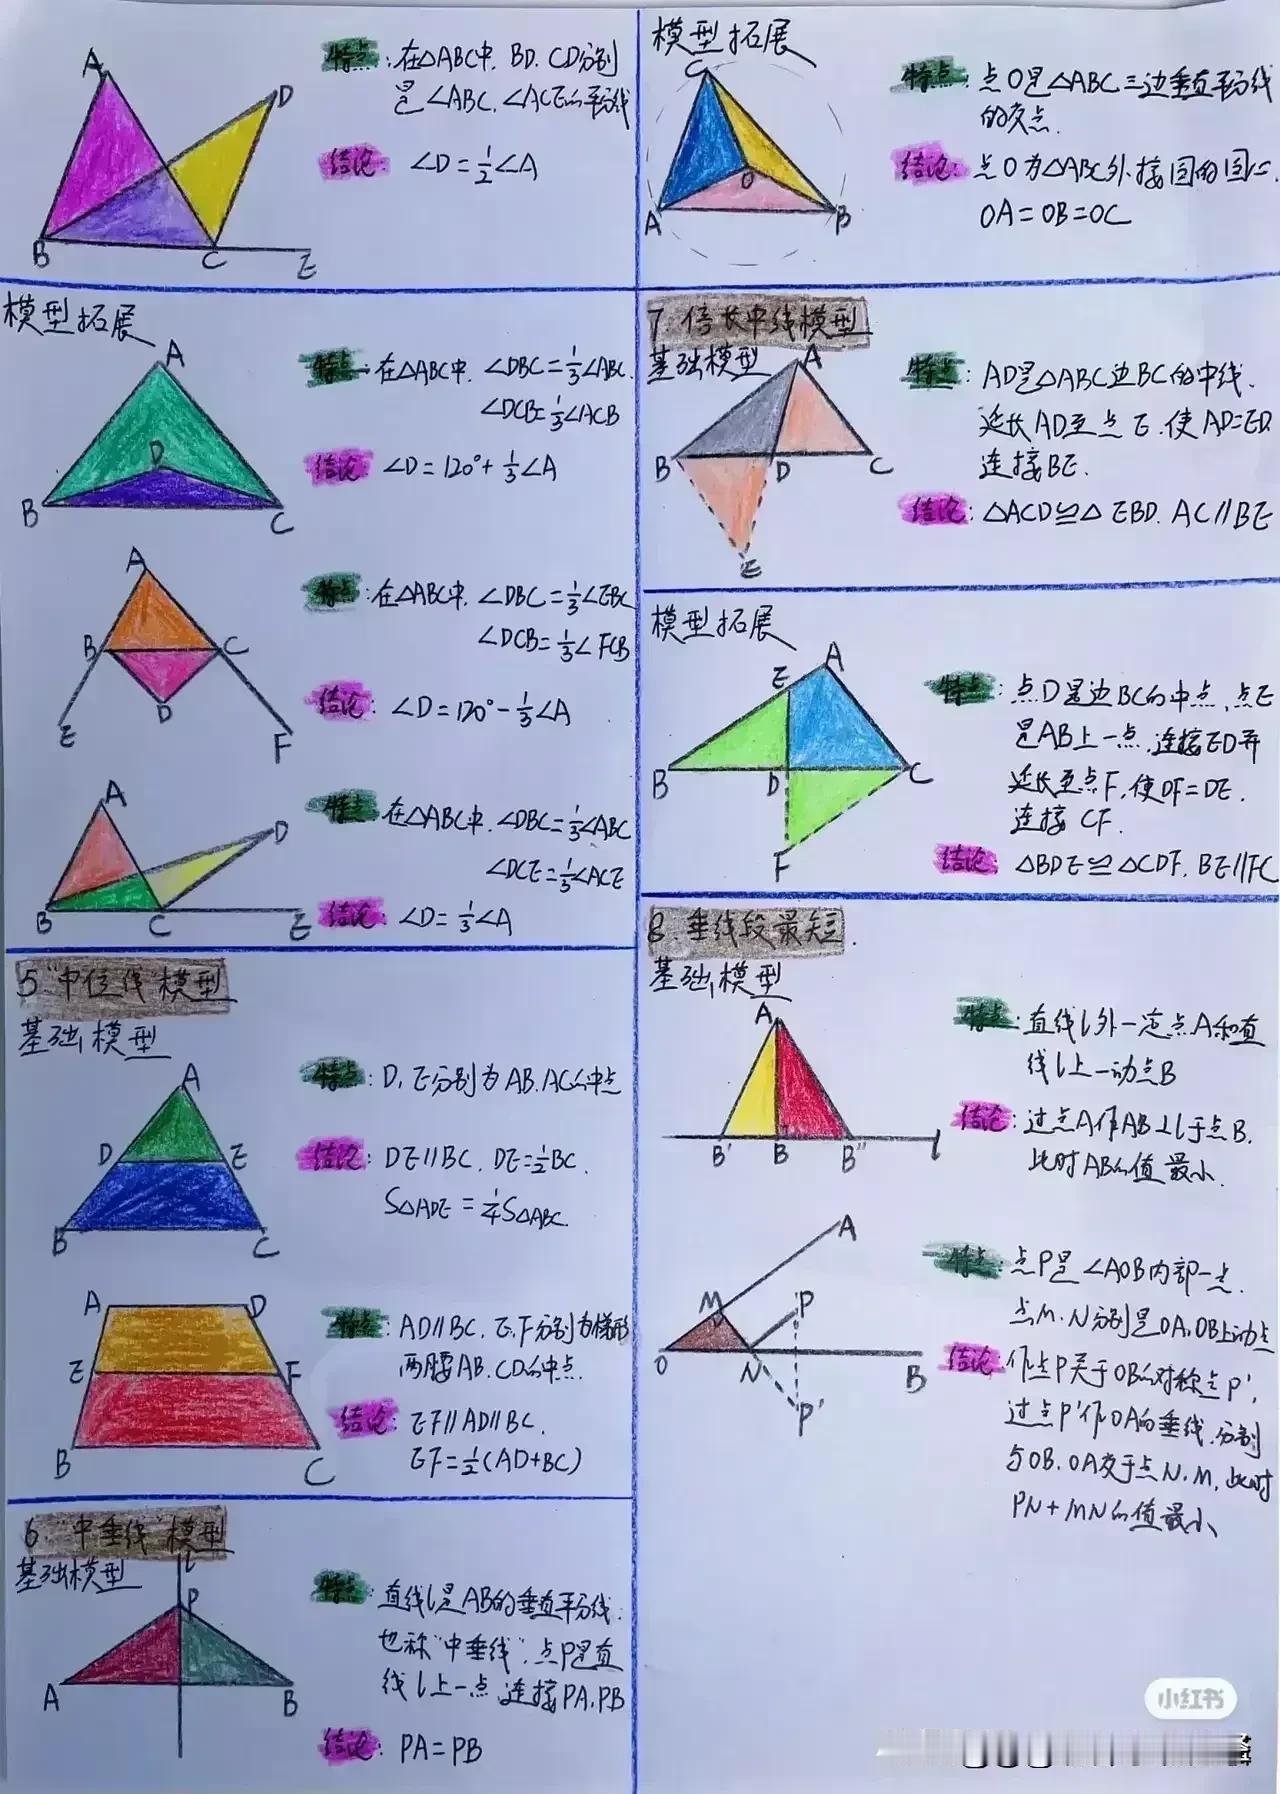 A
D
B
C
E
特点:在△ABC中,BD、CD分别
是∠ABC、∠ACE的平分线
结论: ∠D=½∠A
模型拓展
A
D
B
C
特点:在△ABC中,∠DBC=⅓∠ABC.
∠DCB=⅓∠ACB
结论: ∠D=120°+⅓∠A
A
B
C
D
E
F
特点:在△ABC中,∠DBC=⅓∠EBC
∠DCB=⅓∠FCB
结论: ∠D=120°-⅓∠A
A
D
B
C
E
特点:在△ABC中,∠DBC=⅓∠ABC
∠DCE=⅓∠ACE
结论: ∠D=⅓∠A
5."中位线"模型
基础模型
A
D
E
B
C
特点:D、E分别为AB、AC的中点
结论:DE∥BC、DE=½BC.
S△ADE=¼S△ABC.
A
D
E
F
B
C
特点:AD∥BC、E、F分别为梯形
两腰AB、CD的中点.
结论:EF∥AD∥BC.
EF=½(AD+BC)
6."中垂线"模型
基础模型
l
P
A
B
特点:直线l是AB的垂直平分线.
也称"中垂线".点P是直
线l上一点,连接PA、PB
结论: PA=PB
模型拓展
C
O
A
B
特点:点O是△ABC三边垂直平分线
的交点.
结论:点O为△ABC外接圆的圆心.
OA=OB=OC
7.倍长中线模型
基础模型
A
B
D
C
E
特点:AD是△ABC边BC的中线.
延长AD至点E.使AD=ED.
连接BE.
结论:△ACD≌△EBD. AC∥BE
模型拓展
E
A
B
D
C
F
特点:点D是边BC的中点,点E
是AB上一点,连接ED并
延长至点F,使DF=DE.
连接CF.
结论: △BDE≌△CDF. BE∥FC
8.垂线段最短.
基础模型
A
B'
B
B''
l
特点:直线l外一定点A和直
线l上一动点B
结论:过点A作AB⊥l于点B.
此时AB的值最小.
A
M
P
O
N
B
P'
特点:点P是∠AOB内部一点.
点M、N分别是OA、OB上动点
结论:作点P关于OB的对称点P'.
过点P'作OA的垂线.分别
与OB、OA交于点N、M.此时
PN+MN的值最小
小红书